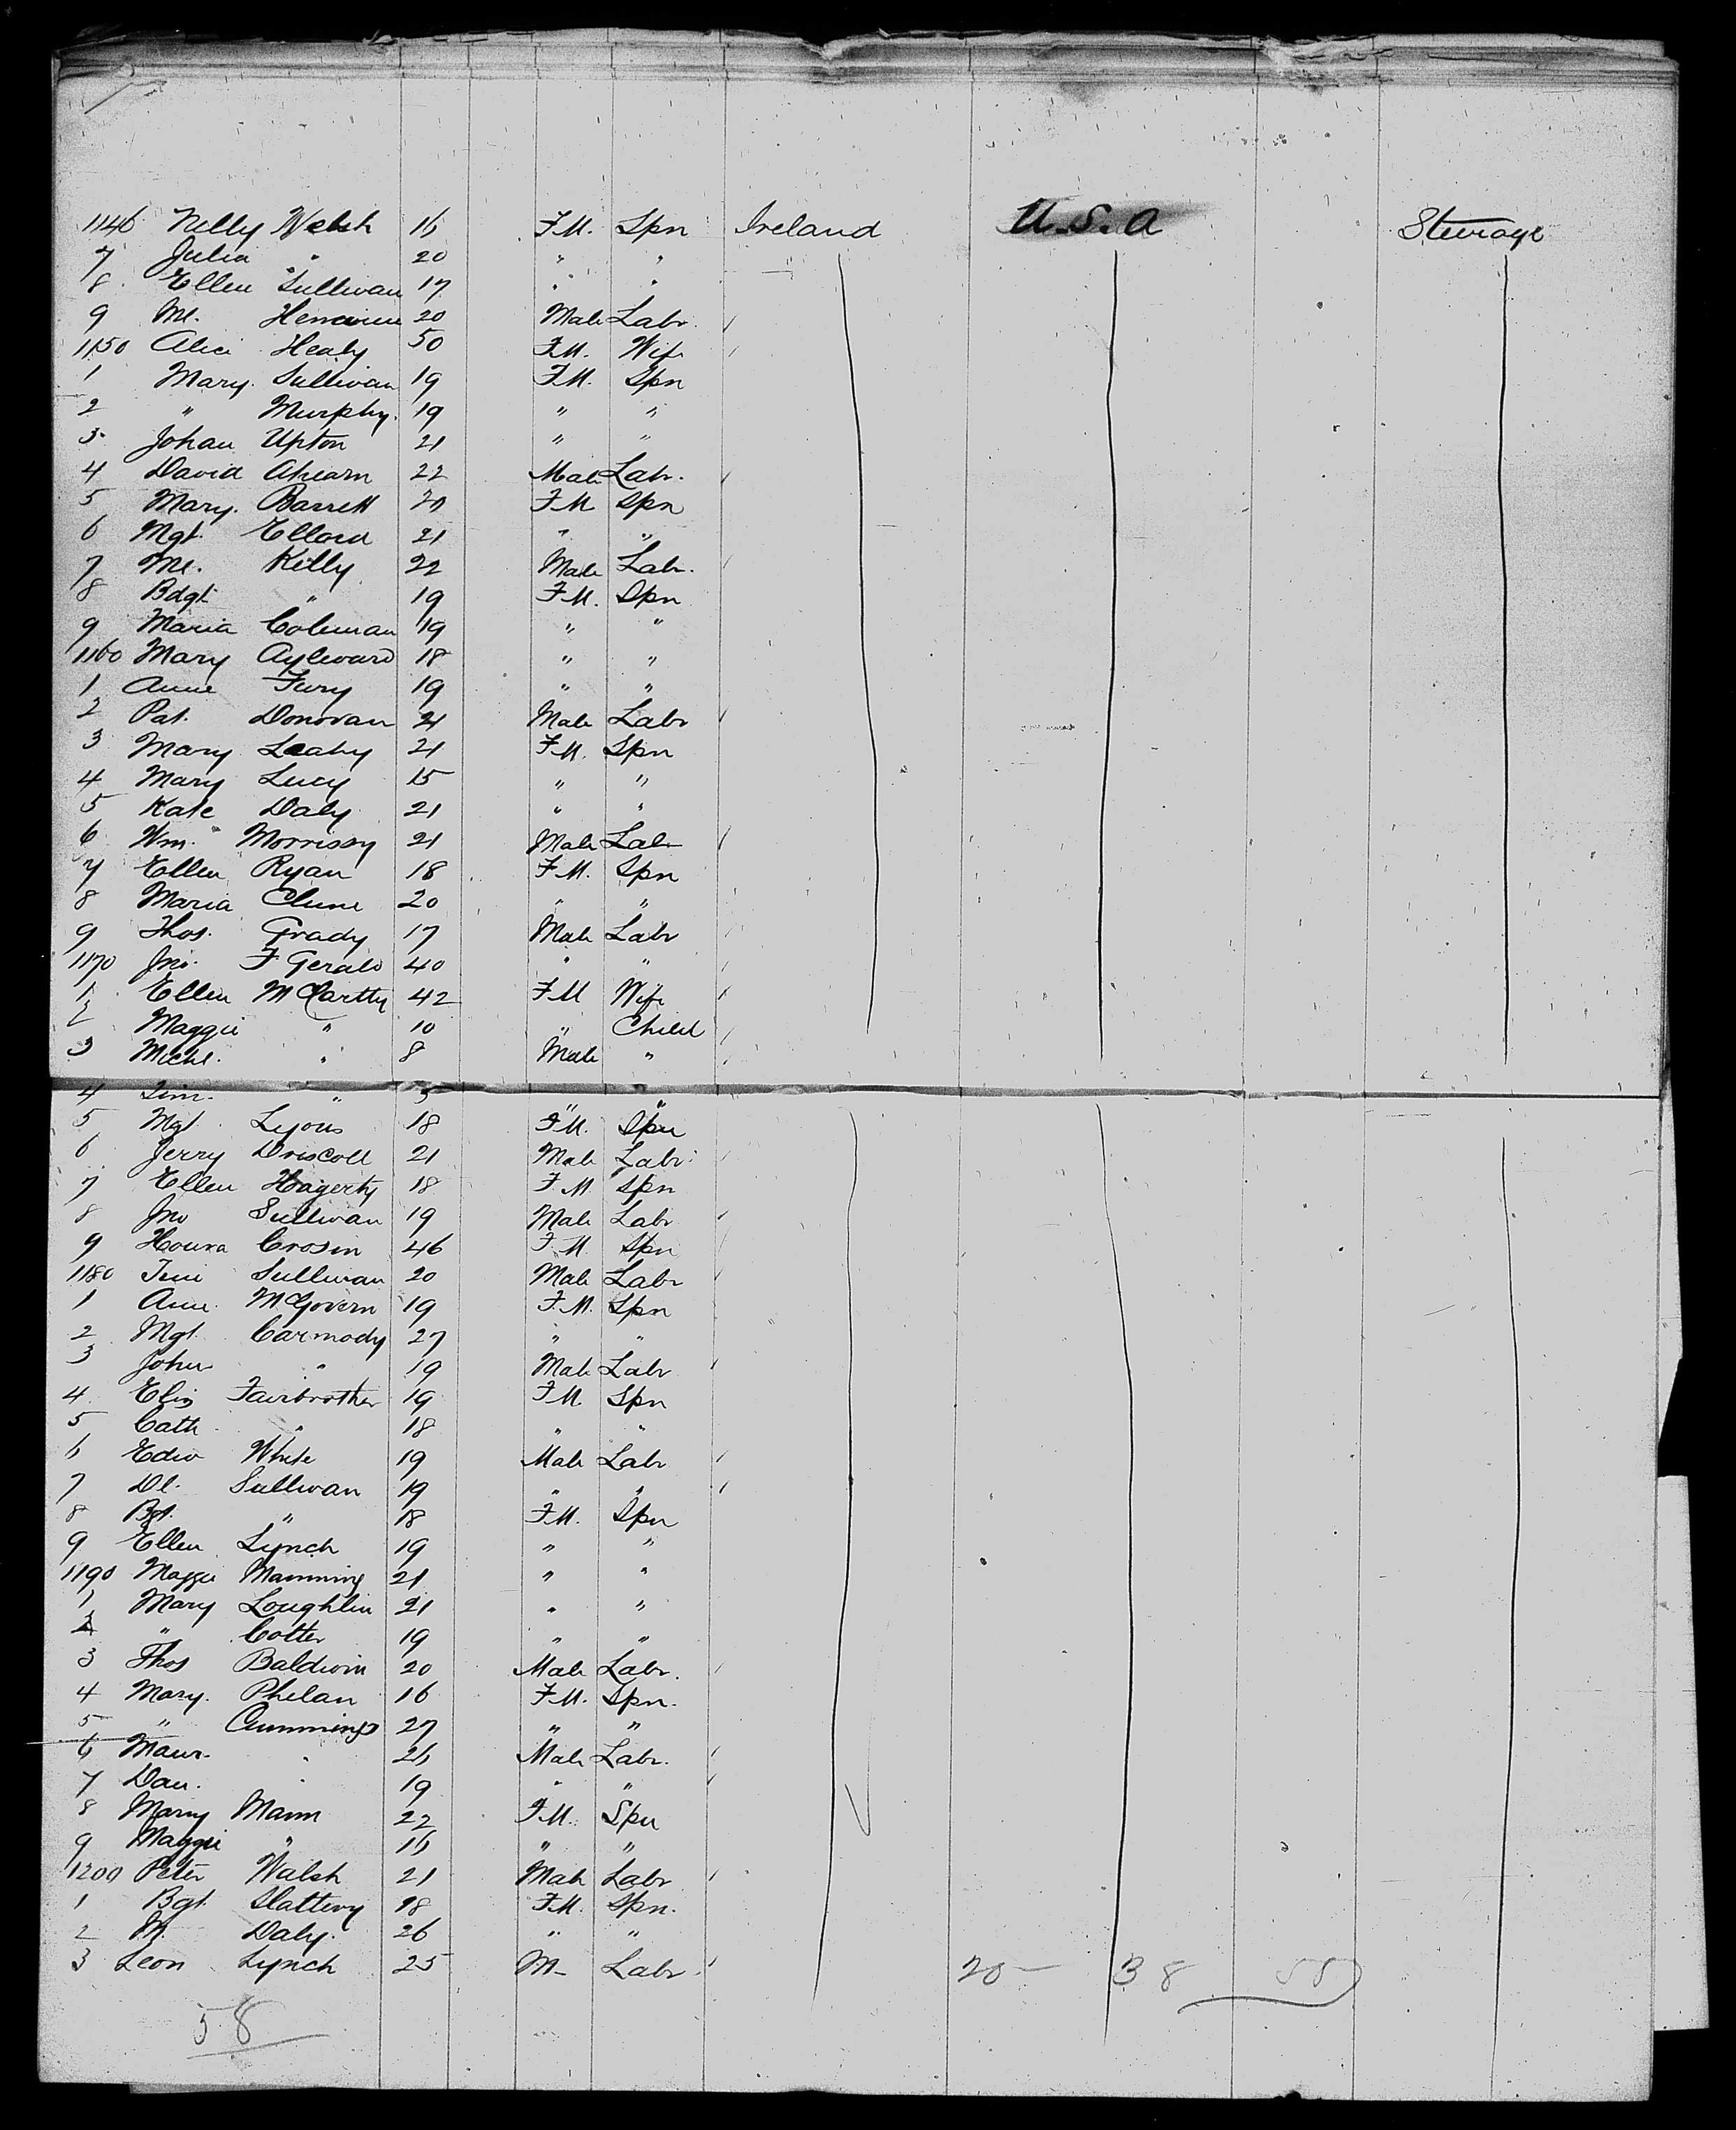 1146 Nelly Welsh 16 F.M. Spn Ireland U.S.A Steerage
7 Julia " 20 " "
8 Ellen Sullivan 17 " "
9 Ml. 20 Male Labr.
1150 Alice Healy 50 F.M. Wife
1 Mary Sullivan 19 F.M. Spn
2 " Murphy 19 " "
3 Johan Upton 21 " "
4 David Ahearn 22 Male Labr.
5 Mary Barrett 20 F.M Spn
6 Mgt. Ellard 21 " "
7 Ml. Kelly 22 Male Labr.
8 Bdgt " 19 F.M. Spn
9 Maria Coleman 19 " "
1160 Mary Aylward 18 " "
1 Anne Fury 19 " "
2 Pat. Donovan 21 Male Labr
3 Mary Leahy 21 F.M. Spn
4 Mary Lucy 15 " "
5 Kate Daly 21 " "
6 Wm. Morrissy 21 Male Labr
7 Ellen Ryan 18 F.M. Spn
8 Maria Clune 20 " "
9 Thos. Grady 17 Male Labr
1170 Jno. F Gerald 40 " "
1 Ellen McCartty 42 F.M Wife
2 Maggie " 10 " Child
3 Michl. " 8 Male "
4 Tim. " 5 " "
5 Mgt Lyons 18 F.M. Spn
6 Jerry Driscoll 21 Male Labr.
7 Ellen Hagerty 18 F.M. Spn
8 Jno Sullivan 19 Male Labr
9 Honra 46 F.M. Spn
1180 Tim Sullivan 20 Male Labr
1 Anne McGovern 19 F.M. Spn
2 Mgt. Carmody 27 " "
3 John " 19 Male Labr
4 Eliz Fairbrother 19 F.M. Spn
5 Cath " 18 " "
6 Edw White 19 Male Labr
7 Dl. Sullivan 19 " "
8 Bgt. " 18 F.M. Spn
9 Ellen Lynch 19 " "
1190 Maggie Manning 21 " "
1 Mary Loughlin 21 " "
2 " Cotter 19 " "
3 Thos Baldwin 20 Male Labr.
4 Mary. Phelan 16 F.M. Spn.
5 " Cummings 27 " "
6 Maur. " 26 Male Labr.
7 Dan. " 19 " "
8 Mary Mann 22 F.M. Spn
9 Maggie " 16 " "
1200 Peter Walsh 21 Male Labr
1 Bgt. Slattery 18 F.M. Spn.
2 M. Daly 26 " "
3 Leon Lynch 25 M- Labr. 20 - 38
58